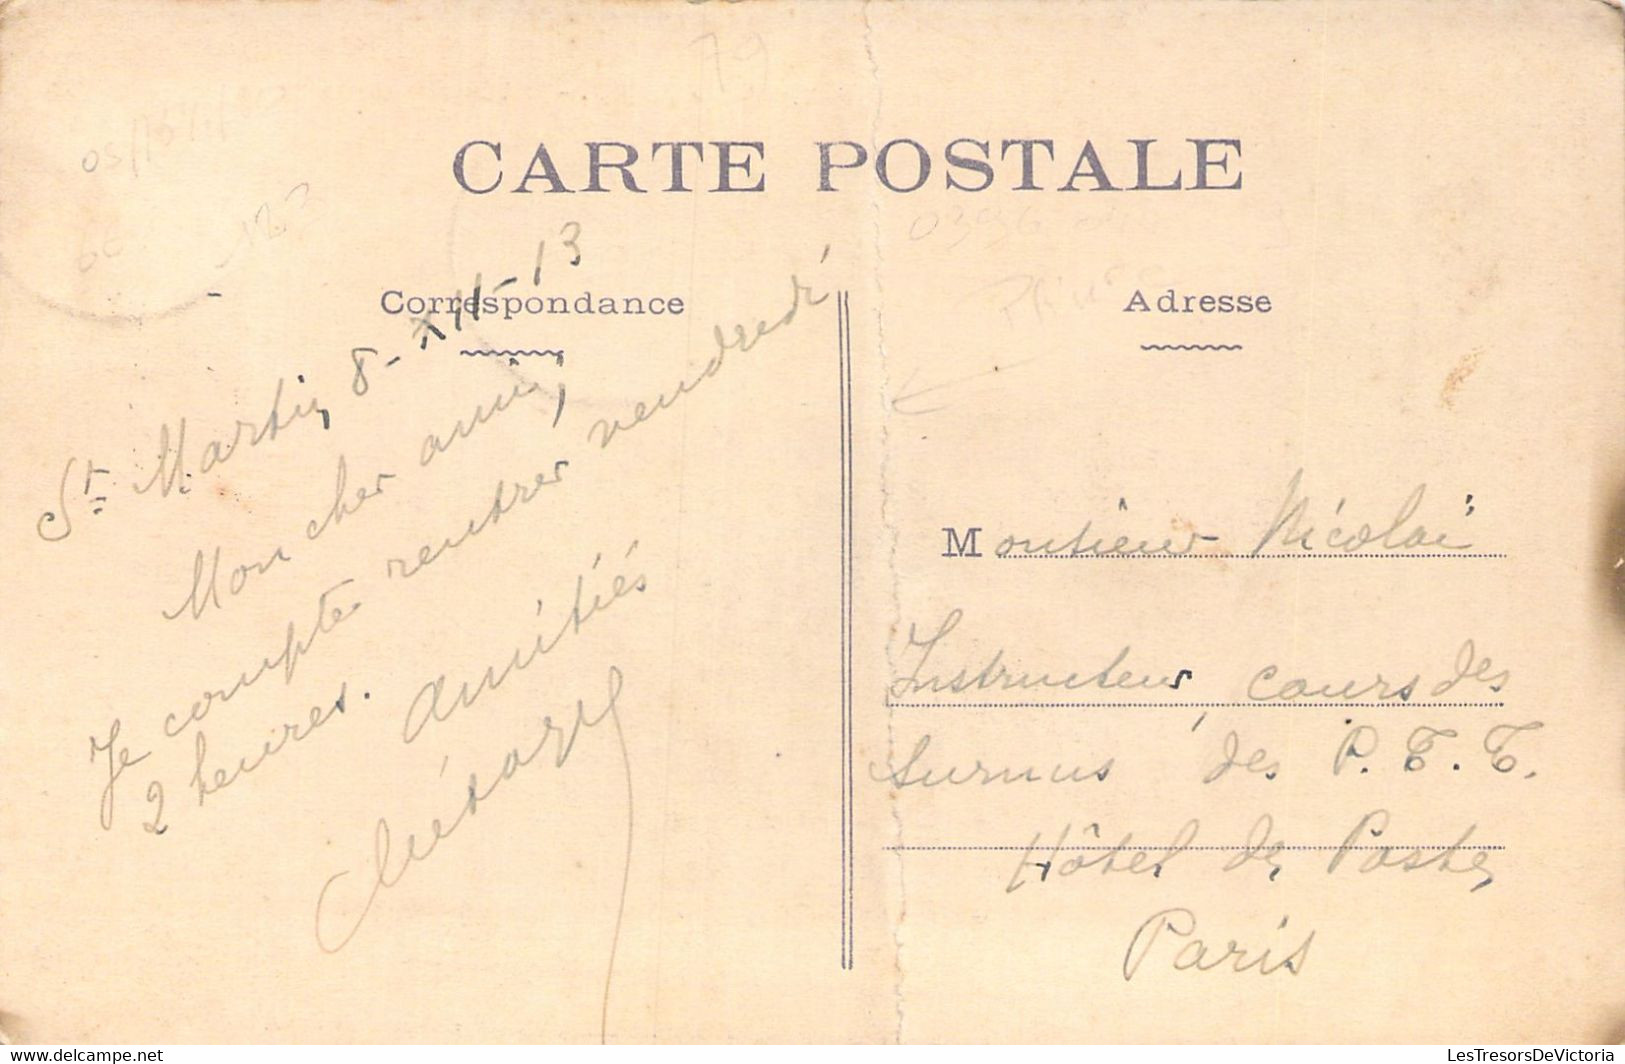 CARTE POSTALE
Correspondance
St Martin, 8-XII-13
Mon cher ami,
Je compte rentrer vendredi
2 heures.
Amitiés
Adresse
Monsieur Nicolaï
Instructeur cours des
surnus des P.T.T.
Hôtel des Postes
Paris
79
www.delcampe.net
LesTresorsDeVictoria